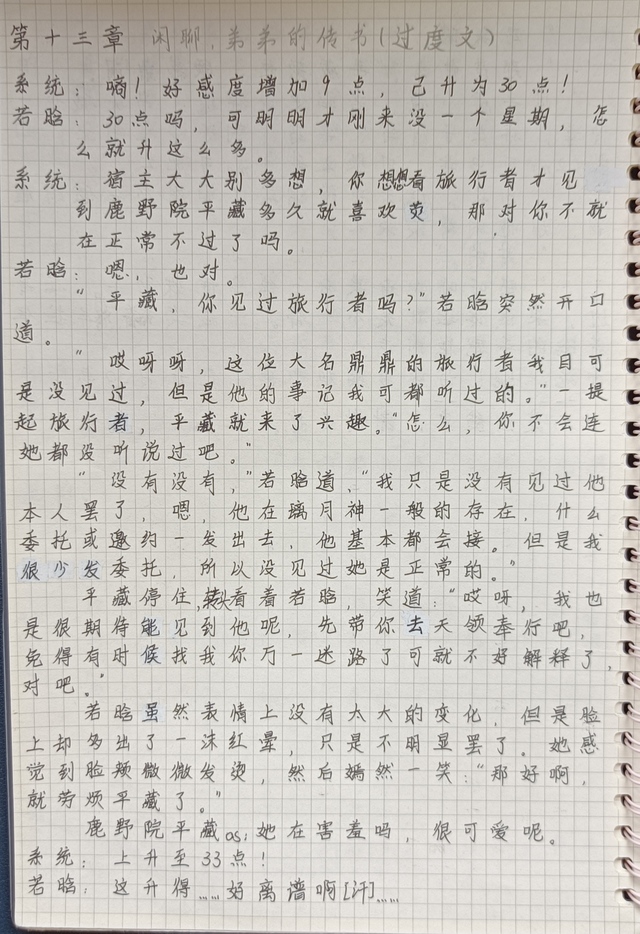 第十三章 闲聊,弟弟的传书(过度文)
系统:嘀!好感度增加9点,己升为30点!
若晗:30点吗,可明明才刚来没一个星期,怎
么就升这么多。
系统:宿主大大别多想,你想想看旅行者才见
到鹿野院平藏多久就喜欢荧,那对你不就
在正常不过了吗。
若晗:嗯,也对。
"平藏,你见过旅行者吗?"若晗突然开口
道。
"哎呀呀,这位大名鼎鼎的旅行者我目可
是没见过,但是他的事记我可都听过的。"一提
起旅行者,平藏就来了兴趣。"怎么,你不会连
她都没听说过吧。"
"没有没有,"若晗道,"我只是没有见过他
本人罢了,嗯,他在璃月神一般的存在,什么
委托或邀约一发出去,他基本都会接。但是我
很少发委托,所以没见过她是正常的。"
平藏停住,转头看着若晗,笑道:"哎呀,我也
是很期待能见到他呢,先带你去天领奉行吧,
免得有时候找我你万一迷路了可就不好解释了,
对吧。"
若晗虽然表情上没有太大的变化,但是脸
上却多出了一沫红晕,只是不明显罢了。她感
觉到脸颊微微发烫,然后嫣然一笑:"那好啊,
就劳烦平藏了。"
鹿野院平藏os:她在害羞吗,很可爱呢。
系统:上升至33点!
若晗:这升得……好离谱啊[汗]……